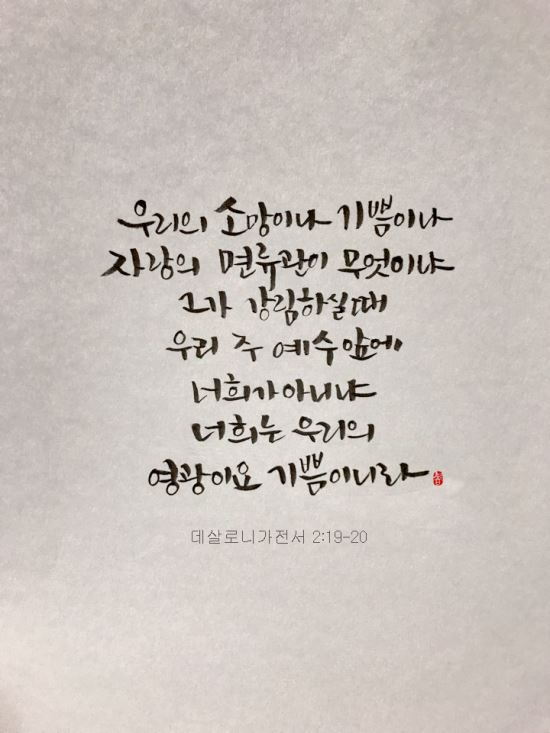 우리의 소망이나 기쁨이나
자랑의 면류관이 무엇이냐
그가 강림하실때
우리 주 예수 앞에
너희가 아니냐
너희는 우리의
영광이요 기쁨이니라
데살로니가전서 2:19-20